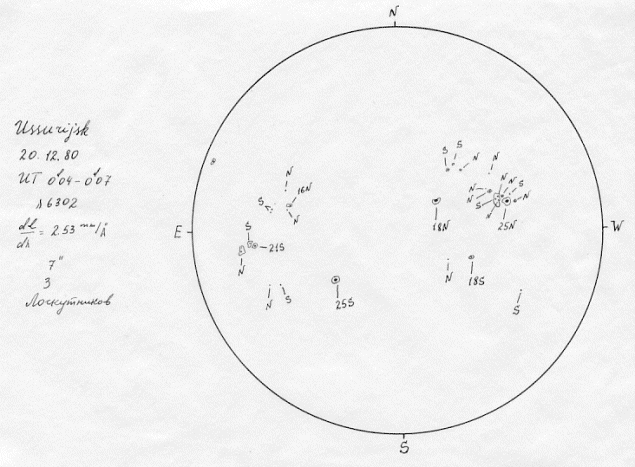 N
Ussurijsk
20.12.80
UT 0ʰ04-0ʰ07
λ6302
dl/dλ = 2.53 mm/Å
7"
3
Лоскутников
E
W
S
S S N N
N N
N S
S N
N
18N
25N
N
S
16N
N
S
21S
N
N S
25S
N
18S
S